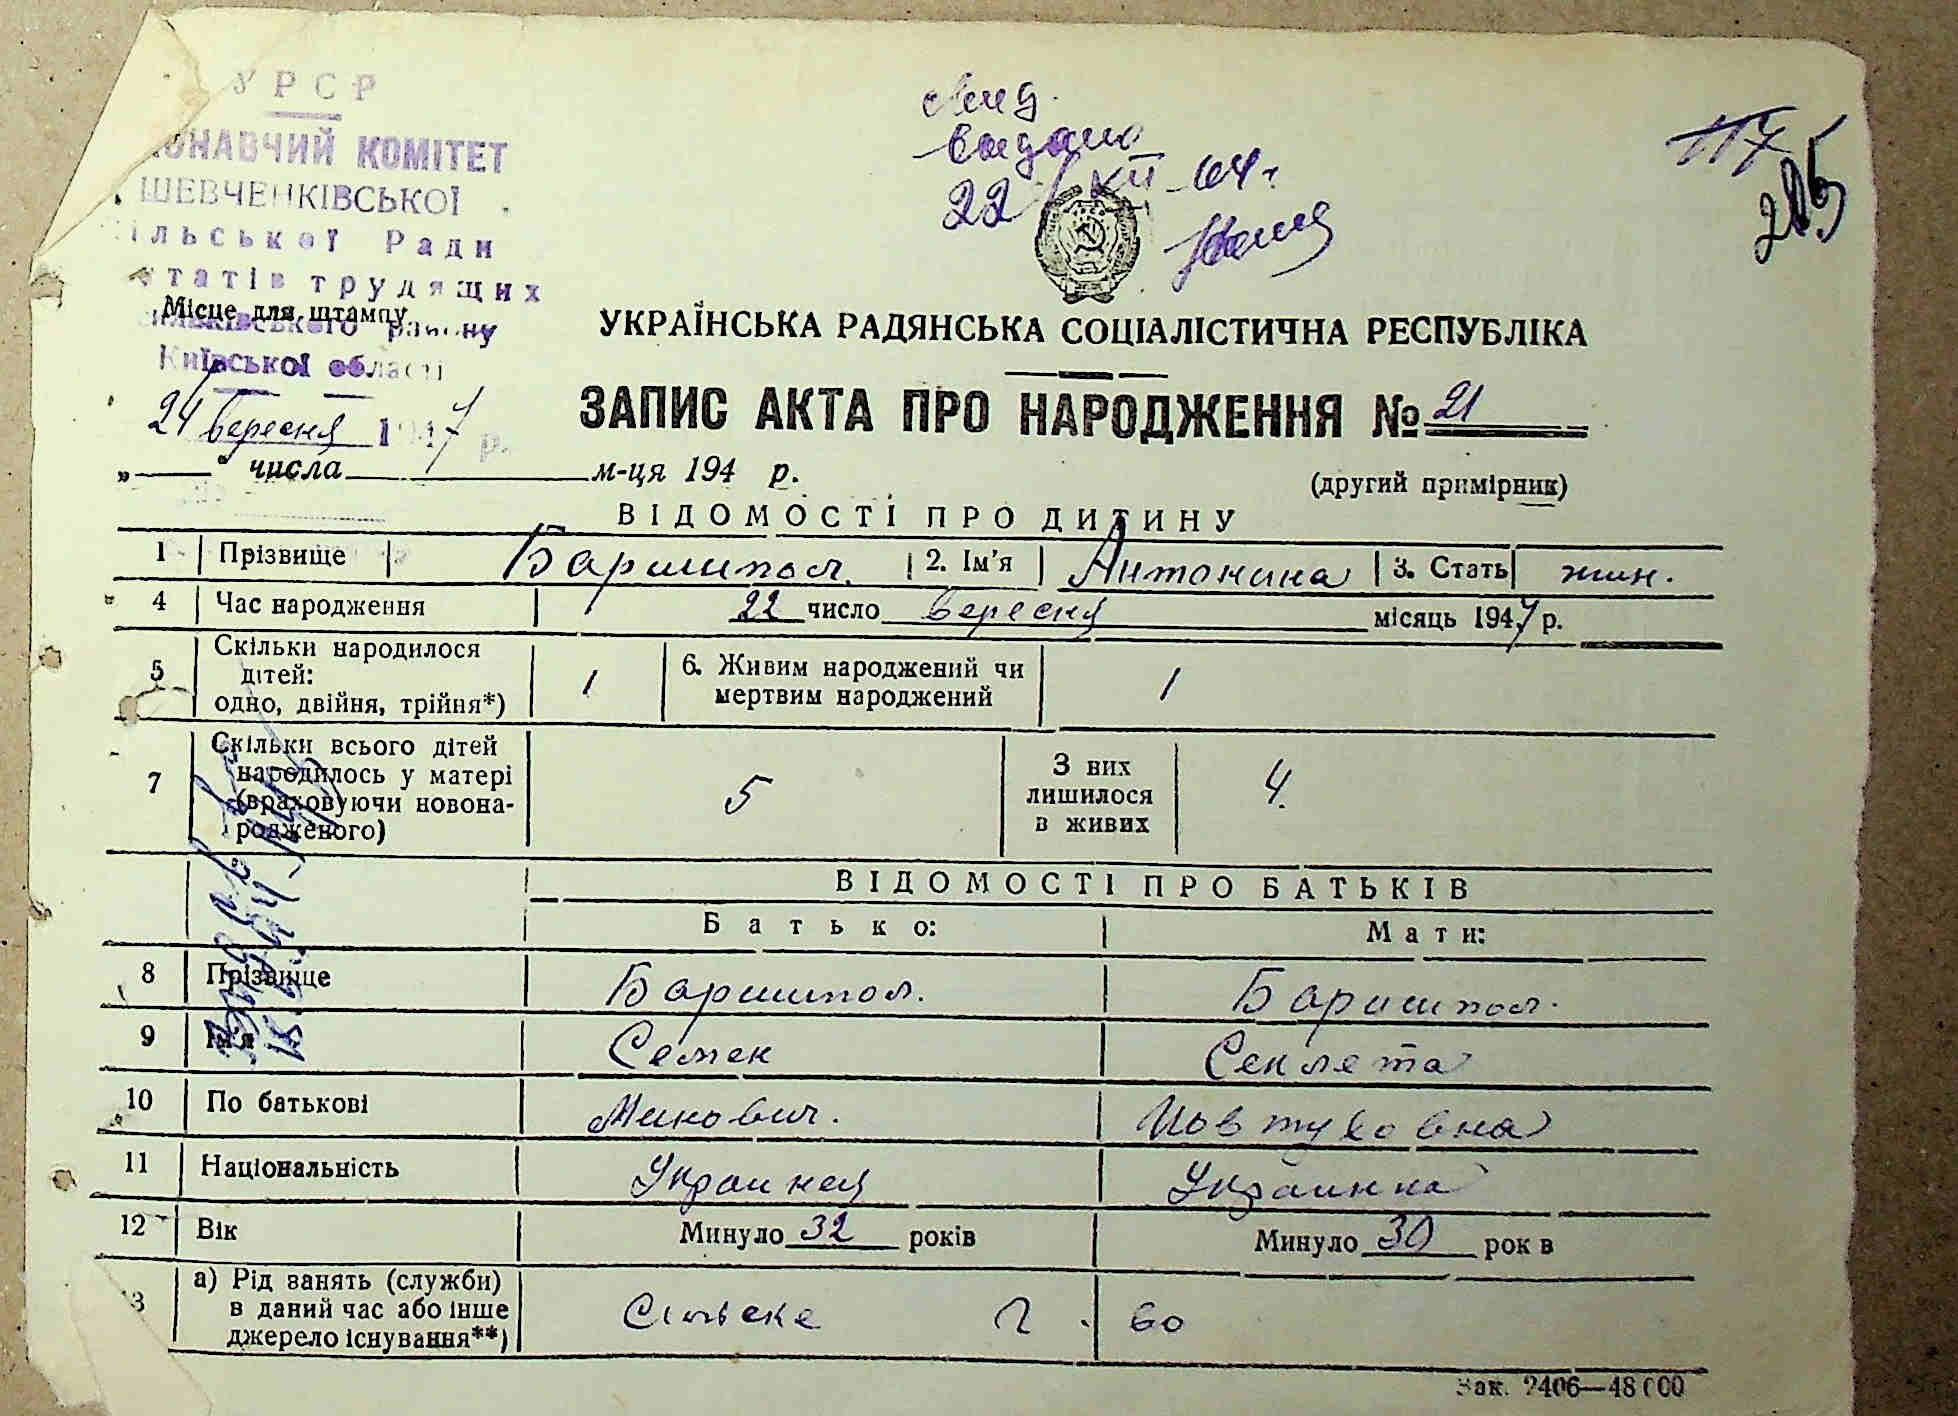 УРСР
ОНАВЧИЙ КОМІТЕТ
ШЕВЧЕНКІВСЬКОЇ
ільської Ради
татів трудящих
Місце для штампу
району
Київської області
24 вересня 1947 р.
видано
22/XII-64 г.
117
205
УКРАЇНСЬКА РАДЯНСЬКА СОЦІАЛІСТИЧНА РЕСПУБЛІКА
ЗАПИС АКТА ПРО НАРОДЖЕННЯ № 21
„ “ числа м-ця 194 р.
(другий примірник)
ВІДОМОСТІ ПРО ДИТИНУ
1 Прізвище Баришпол. 2. Ім'я Антонина 3. Стать жин.
4 Час народження 22 число вересня місяць 1947 р.
5 Скільки народилося дітей: одно, двійня, трійня*) 1 6. Живим народжений чи мертвим народжений 1
7 Скільки всього дітей народилось у матері (враховуючи новонародженого) 5 З них лишилося в живих 4.
ВІДОМОСТІ ПРО БАТЬКІВ
Батько: Мати:
8 Прізвище Баришпол. Баришпол.
9 Ім'я Семен Секлета
10 По батькові Минович. Иовтуховна
11 Національність Украинец Украинка
12 Вік Минуло 32 років Минуло 30 рок в
3 а) Рід занять (служби) в даний час або інше джерело існування**) Сільске г. во
Зак. 2406—48000